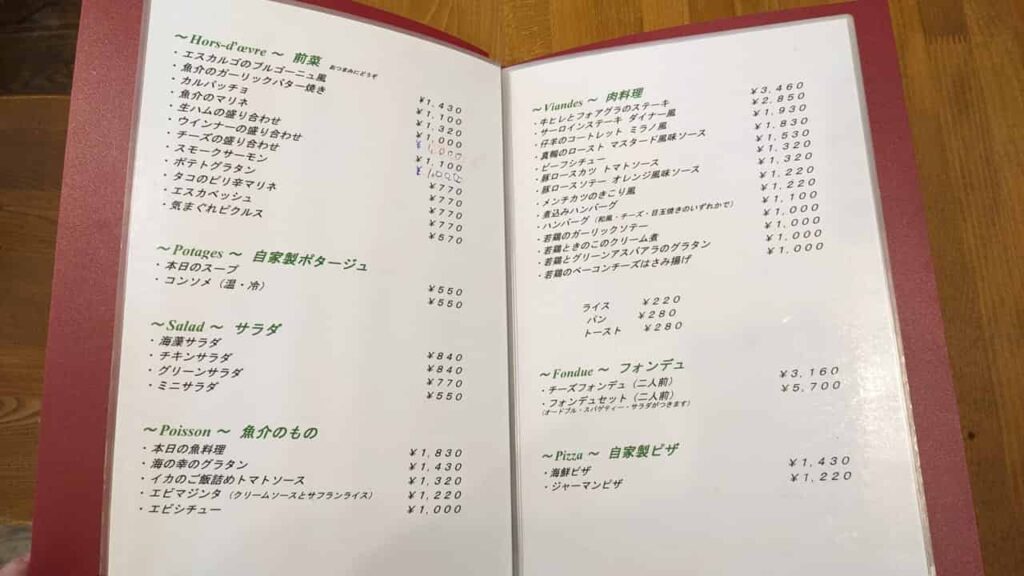 ～Hors-d'œvre ～ 前菜 おつまみにどうぞ
・エスカルゴのブルゴーニュ風 ¥1,430
・魚介のガーリックバター焼き ¥1,100
・カルパッチョ ¥1,320
・魚介のマリネ ¥1,000
・生ハムの盛り合わせ ¥1,000
・ウインナーの盛り合わせ ¥1,100
・チーズの盛り合わせ ¥1,000
・スモークサーモン ¥770
・ポテトグラタン ¥770
・タコのピリ辛マリネ ¥770
・エスカベッシュ ¥770
・気まぐれピクルス ¥570
～Potages ～ 自家製ポタージュ
・本日のスープ ¥550
・コンソメ（温・冷） ¥550
～Salad ～ サラダ
・海藻サラダ ¥840
・チキンサラダ ¥840
・グリーンサラダ ¥770
・ミニサラダ ¥550
～Poisson ～ 魚介のもの
・本日の魚料理 ¥1,830
・海の幸のグラタン ¥1,430
・イカのご飯詰めトマトソース ¥1,320
・エビマジンタ（クリームソースとサフランライス） ¥1,220
・エビシチュー ¥1,000
～Viandes ～ 肉料理
・牛ヒレとフォアグラのステーキ ¥3,460
・サーロインステーキ ダイナー風 ¥2,850
・仔羊のコートレット ミラノ風 ¥1,930
・真鴨のロースト マスタード風味ソース ¥1,830
・ビーフシチュー ¥1,530
・豚ロースカツ トマトソース ¥1,320
・豚ロースソテー オレンジ風味ソース ¥1,320
・メンチカツのきこり風 ¥1,220
・煮込みハンバーグ ¥1,220
・ハンバーグ（和風・チーズ・目玉焼きのいずれかで） ¥1,100
・若鶏のガーリックソテー ¥1,000
・若鶏ときのこのクリーム煮 ¥1,000
・若鶏とグリーンアスパアラのグラタン ¥1,000
・若鶏のベーコンチーズはさみ揚げ ¥1,000
ライス ¥220
パン ¥280
トースト ¥280
～Fondue ～ フォンデュ
・チーズフォンデュ（二人前） ¥3,160
・フォンデュセット（二人前） ¥5,700
（オードブル・スパゲティー・サラダがつきます）
～Pizza ～ 自家製ピザ
・海鮮ピザ ¥1,430
・ジャーマンピザ ¥1,220